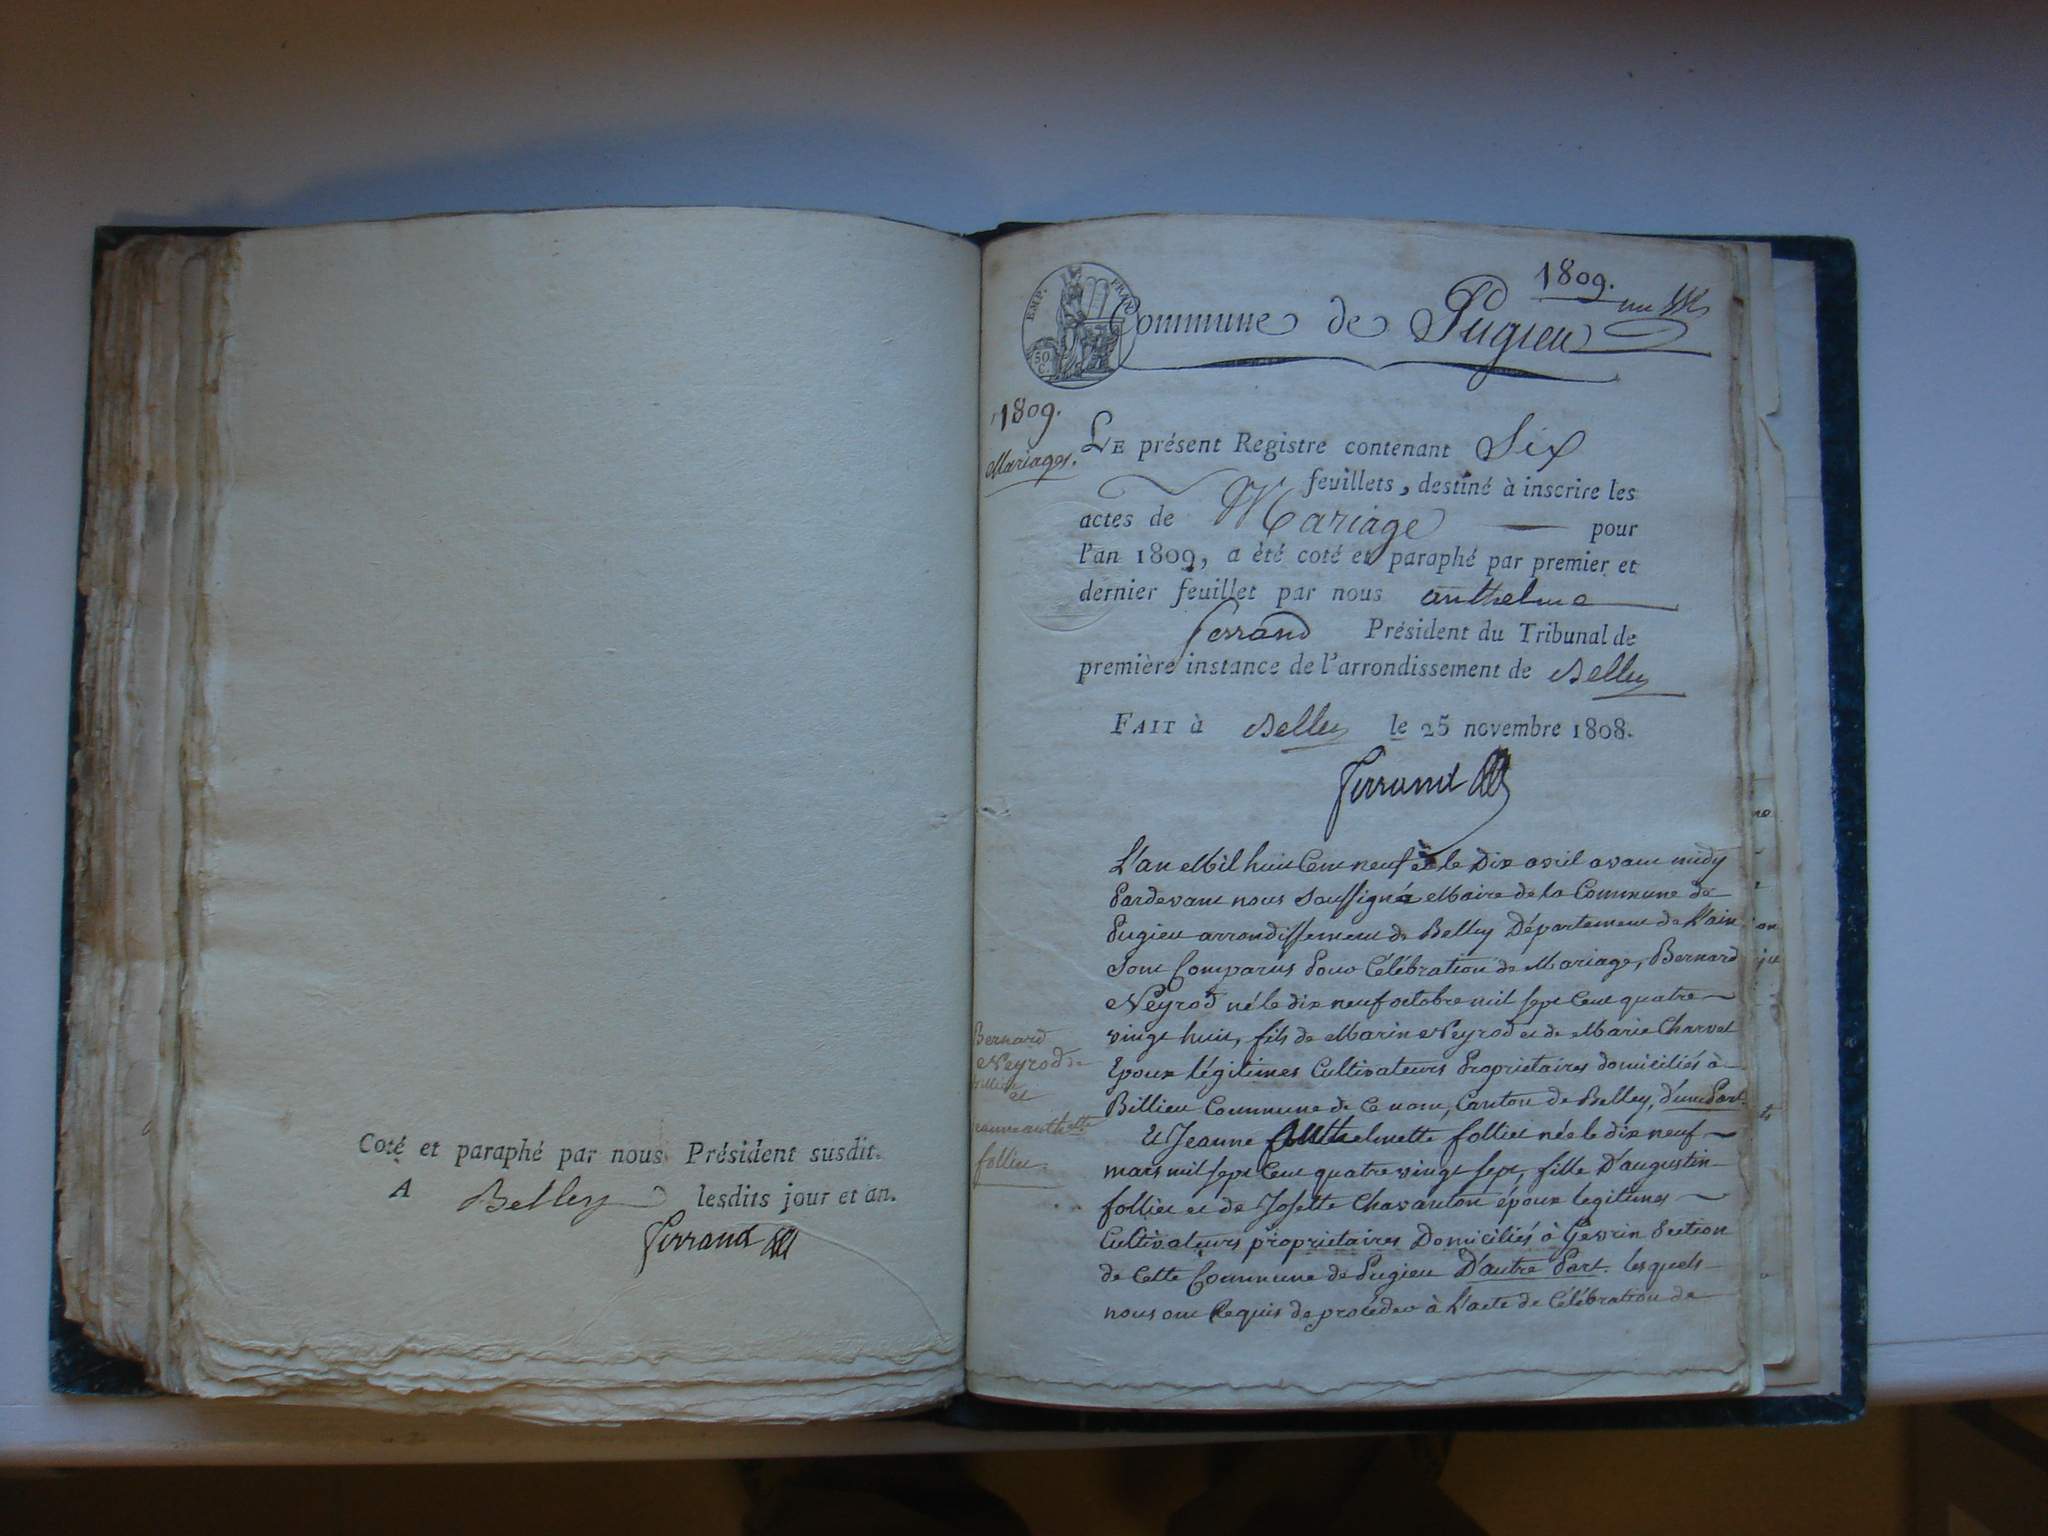 Coté et paraphé par nous Président susdit.
A Belley lesdits jour et an.
Ferrand
1809.
EMP. FRAN
50 C.
Commune de Pugieu
1809.
Mariages.
LE présent Registre contenant Six
feuillets, destiné à inscrire les
actes de Mariage pour
l'an 1809, a été coté et paraphé par premier et
dernier feuillet par nous anthelme
ferrand Président du Tribunal de
première instance de l'arrondissement de Belley
FAIT à Belley le 25 novembre 1808.
Ferrand
L'an Mil huit Cent neuf et le Dix avril avant midy
Pardevant nous Soussigné Maire de la Commune de
Pugieu arrondissement de Belley Département de L'ain
Sont Comparus Pour Célébration de Mariage, Bernard
Neyrod né le dix neuf octobre mil sept Cent quatre
vingt huit, fils de Marin Neyrod et de Marie Charvet
Epoux légitimes Cultivateurs Propriétaires domiciliés à
Billieu Commune de Ce nom, Canton de Belley, d'une Part.
Et Jeanne Anthelmette follies née le dix neuf
mars mil sept Cent quatre vingt sept, fille D'augustin
follies et de Josette Chavanton époux legitimes
Cultivateurs propriétaires Domiciliés à Gevrin Section
de Cette Commune de Pugieu D'autre Part. lesquels
nous ont Requis de proceder à L'acte de Célébration de
Bernard
Neyrod de
Billieu
et
Jeanne anthelte
follies.